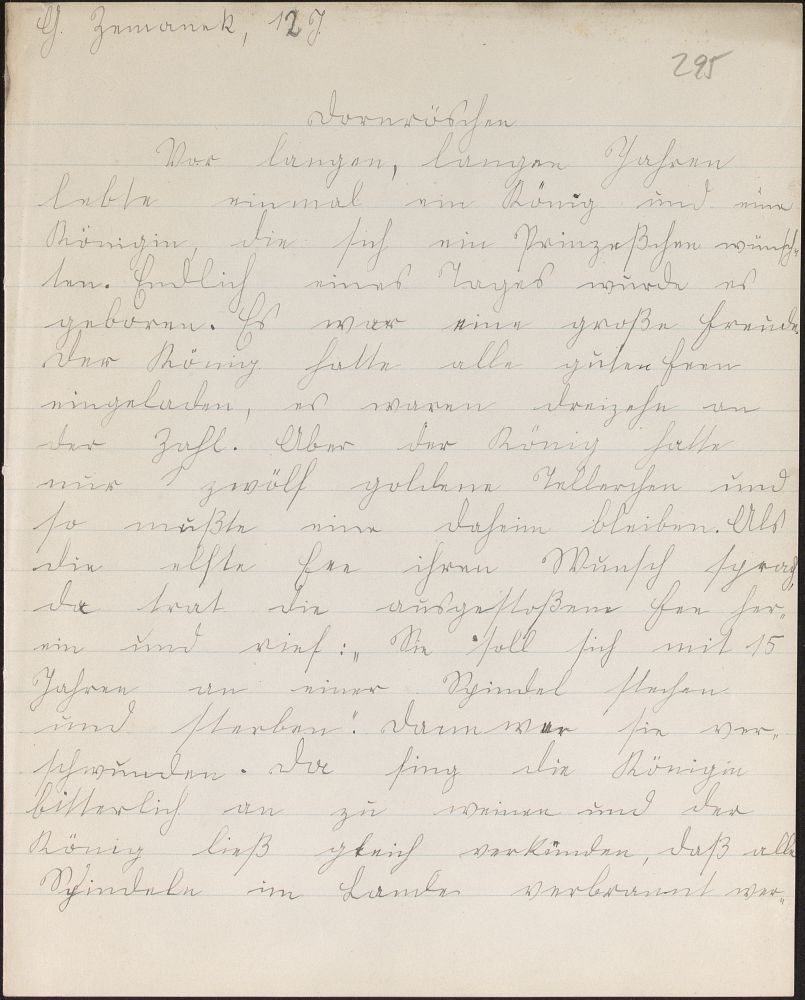 G. Zemanek, 12 J.
295
Dornröschen
Vor langen, langen Jahren
lebte einmal ein König und eine
Königin, die sich ein Prinzeßchen wünsch-
ten. Endlich eines Tages wurde es
geboren. Es war eine große Freude.
Der König hatte alle guten Feen
eingeladen, es waren dreizehn an
der Zahl. Aber der König hatte
nur zwölf goldene Tellerchen und
so mußte eine daheim bleiben. Als
die elfte Fee ihren Wunsch sprach,
da trat die ausgestoßene Fee her-
ein und rief: „Sie soll sich mit 15
Jahren an einer Spindel stechen
und sterben". Dann war sie ver-
schwunden. Da fing die Königin
bitterlich an zu weinen und der
König ließ gleich verkünden, daß alle
Spindeln im Lande verbrannt wer-